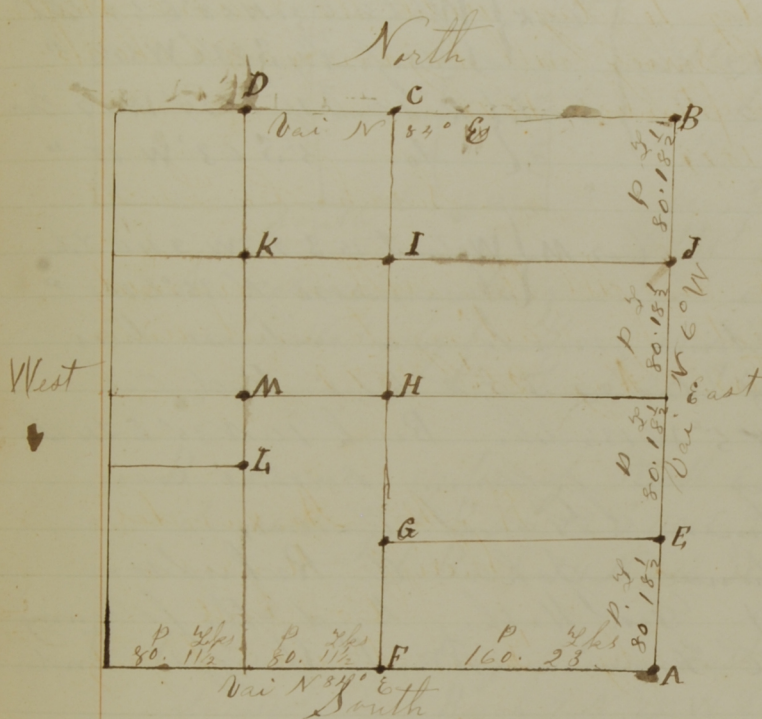 North
D C B
Vai N 84° E
P L
80. 18½
K I J
P L
80. 18½
Vai N 6° W
West M H East
P L
80. 18½
L
G E
P. L
80 18½
P Lks P Lks P Lks
80. 11½ 80. 11½ 160. 23
F A
Vai N 84° E
South